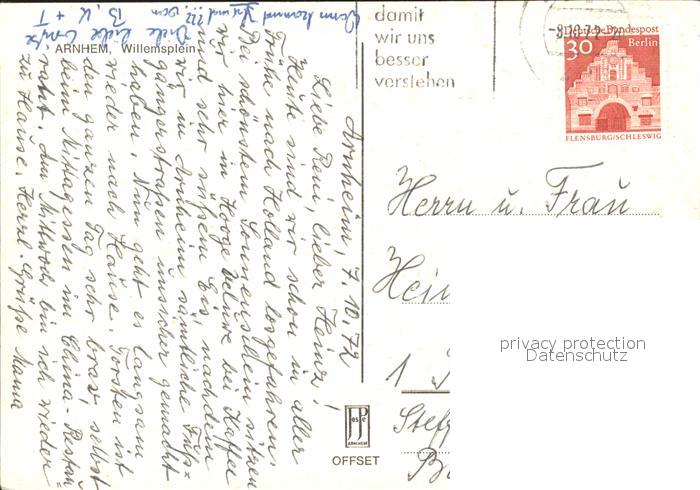 ARNHEM, Willemsplein
Arnheim, 7.10.72
Liebe Reni, lieber Heinz!
Heute sind wir schon in aller
Frühe nach Holland losgefahren.
Bei schönstem Sonnenschein sitzen
wir hier in Hooge Veluwe bei Kaffee
und sehr süßem Eis, nachdem
wir in Arnheim sämtliche Fuß=
gängerstraßen unsicher gemacht
haben. Nun geht es langsam
wieder nach Hause. Torsten ist
den ganzen Tag sehr brav, selbst
beim Mittagessen im China-Restau
rant. Am Mittwoch bin ich wieder
zu Hause. Herzl. Grüße Mama
Wann kommt Ihr uns
Viele liebe Grüße
B, K + T
damit
wir uns
besser
verstehen
-8.10.72
Deutsche Bundespost
Berlin
30
FLENSBURG/SCHLESWIG
Herrn u. Frau
Hei
1
Steg
B
privacy protection
Datenschutz
JosPe
ARNHEM
OFFSET